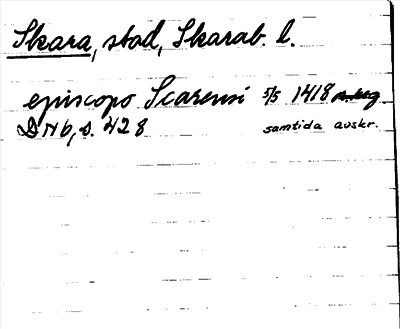 Skara, stad, Skarab. l.
episcopo Scarensi 5/5 1418
DN 6, s. 428 samtida avskr.